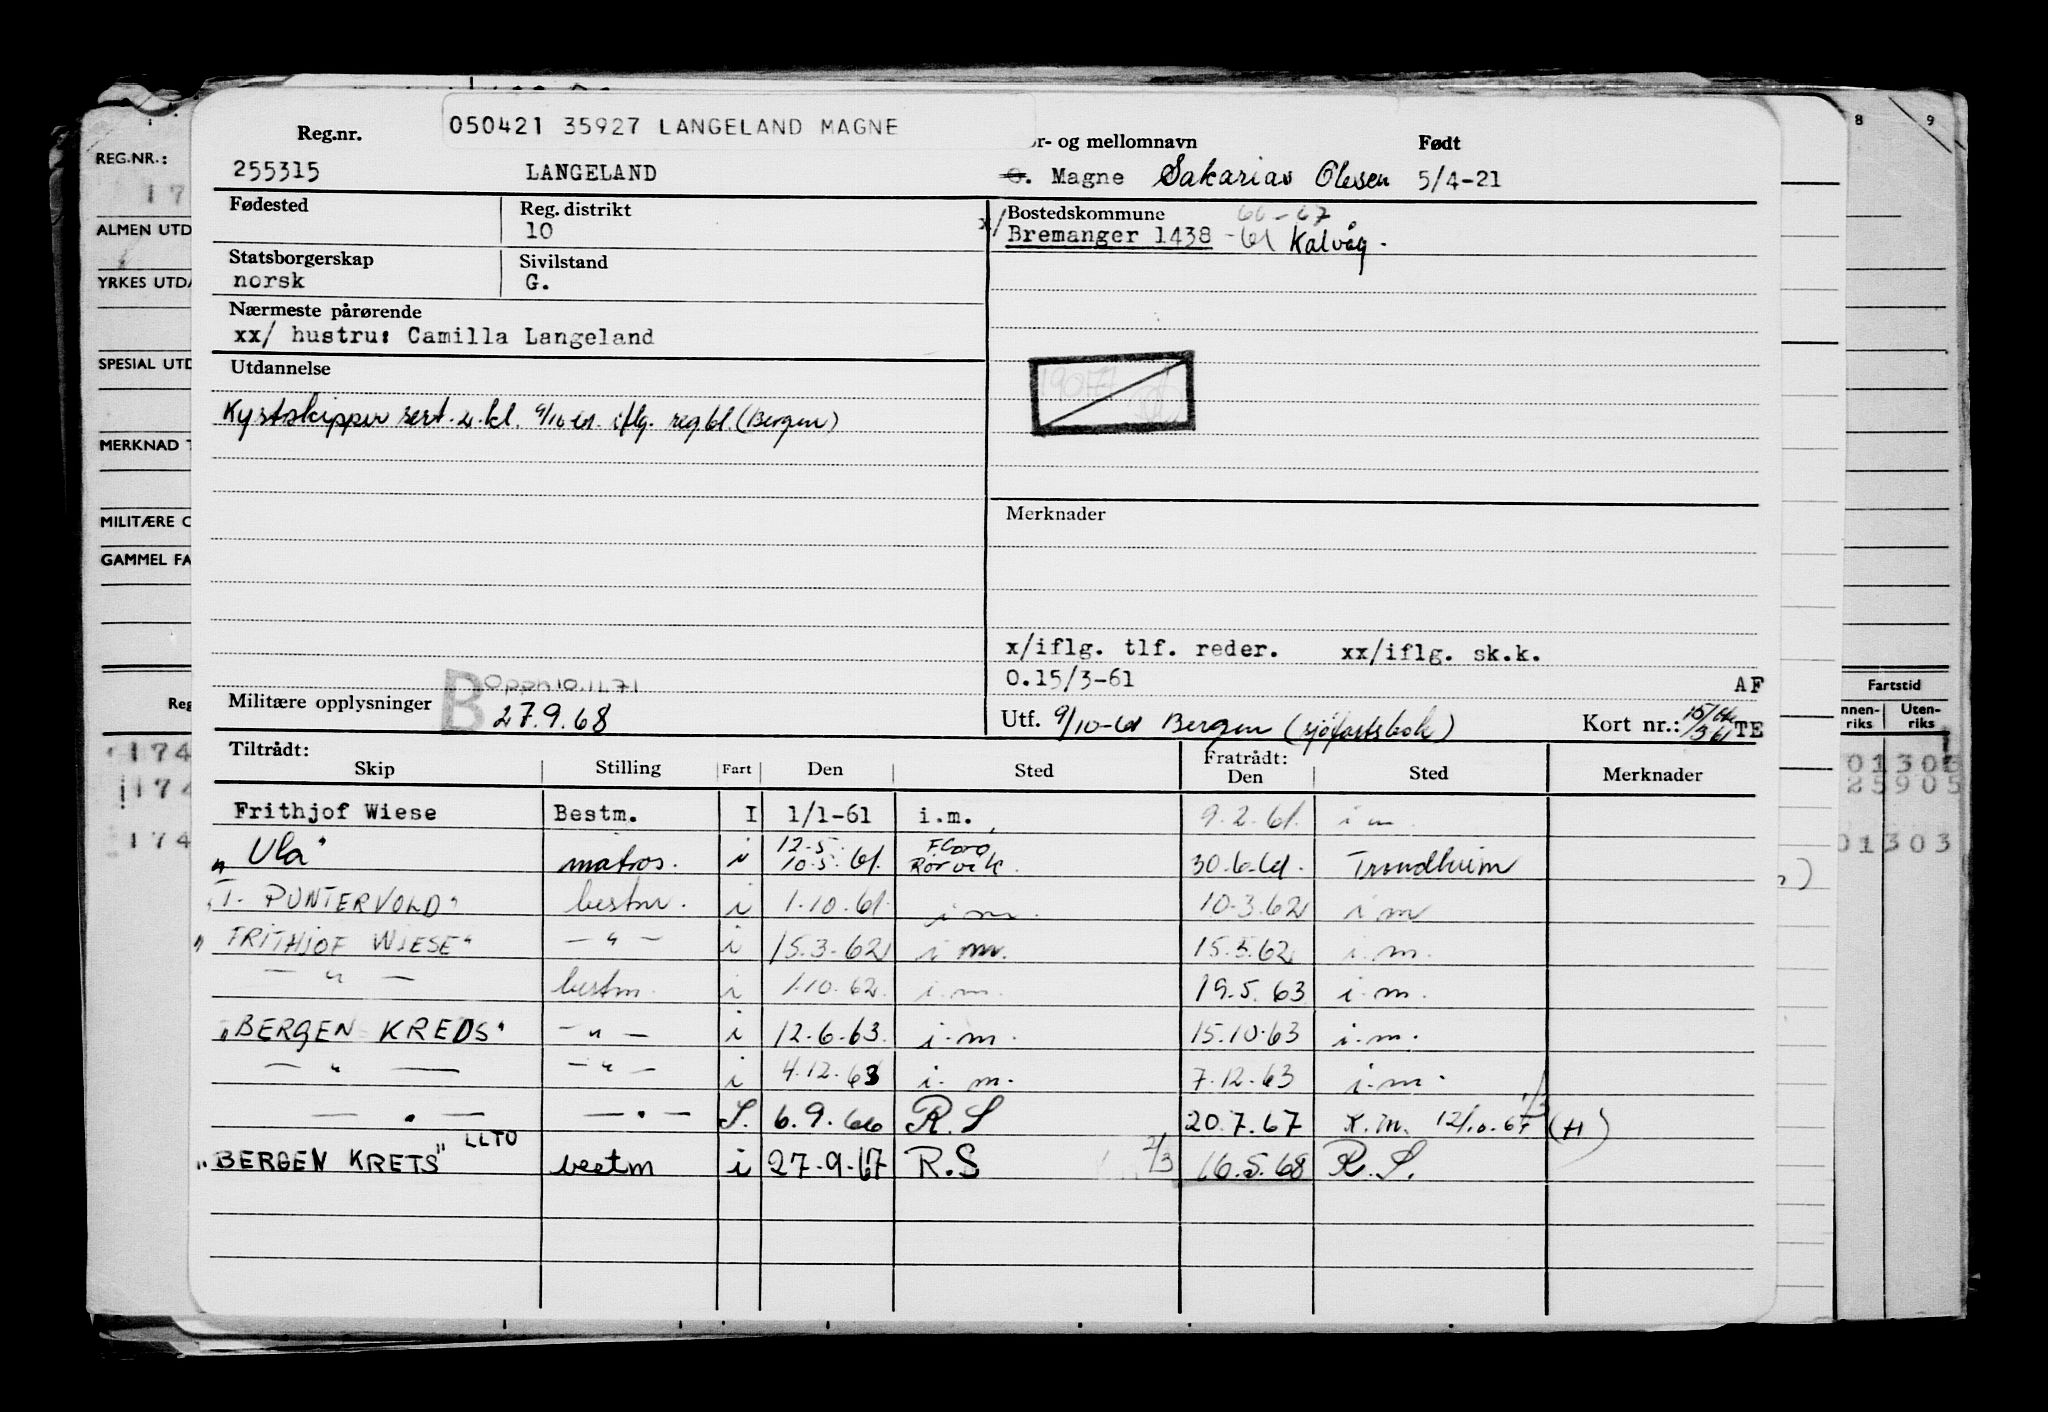 050421 35927 LANGELAND MAGNE
Reg.nr. r- og mellomnavn Født
255315 LANGELAND O. Magne Sakarias Olesen 5/4-21
Fødested Reg. distrikt Bostedskommune 66-67
10 x/ Bremanger 1438 -61 Kalvåg.
Statsborgerskap Sivilstand
norsk G.
Nærmeste pårørende
xx/ hustru: Camilla Langeland
Utdannelse
Kystskipper sert. 2. kl. 9/10-61. iflg. regbl. (Bergen)
Merknader
x/iflg. tlf. reder. xx/iflg. sk.k.
0.15/3-61 AF
Militære opplysninger B Oppn 10.11.71
27.9.68
Utf. 9/10-61 Bergen (sjøfartsbok) Kort nr.: TE
Tiltrådt: Fratrådt:
Skip Stilling Fart Den Sted Den Sted Merknader
Frithjof Wiese Bestm. I 1/1-61 i.m. 9.2.61. i m.
12.5. Florø
"Ula" matros. i 10.5.61. Rørvik. 30.6.61. Trondheim
"T. PUNTERVOLD" bestm. i 1.10.61. i m. 10.3.62 i m
"FRITHJOF WIESE" — " — i 15.3.62 i m. 15.5.62 i. m.
— " — bestm. i 1.10.62. i. m. 19.5.63 i. m.
"BERGEN KREDS" — " — i 12.6.63. i. m. 15.10.63 i. m.
— " — — " — i 4.12.63 i. m. 7.12.63 i. m.
— " — — " — S. 6.9.66 R.S 20.7.67 x. m. 12/10.67 (H)
"BERGEN KRETS" LLTO bestm i 27.9.67 R.S 2/3 16.5.68 R.S.
REG.NR.:
17
ALMEN UTD
YRKES UTDA
SPECIAL UTD
MERKNAD T
MILITÆRE O
GAMMEL FA
Reg
174
174
174
8 9
Fartstid
nnen- Uten-
riks riks
01303
25905
01303